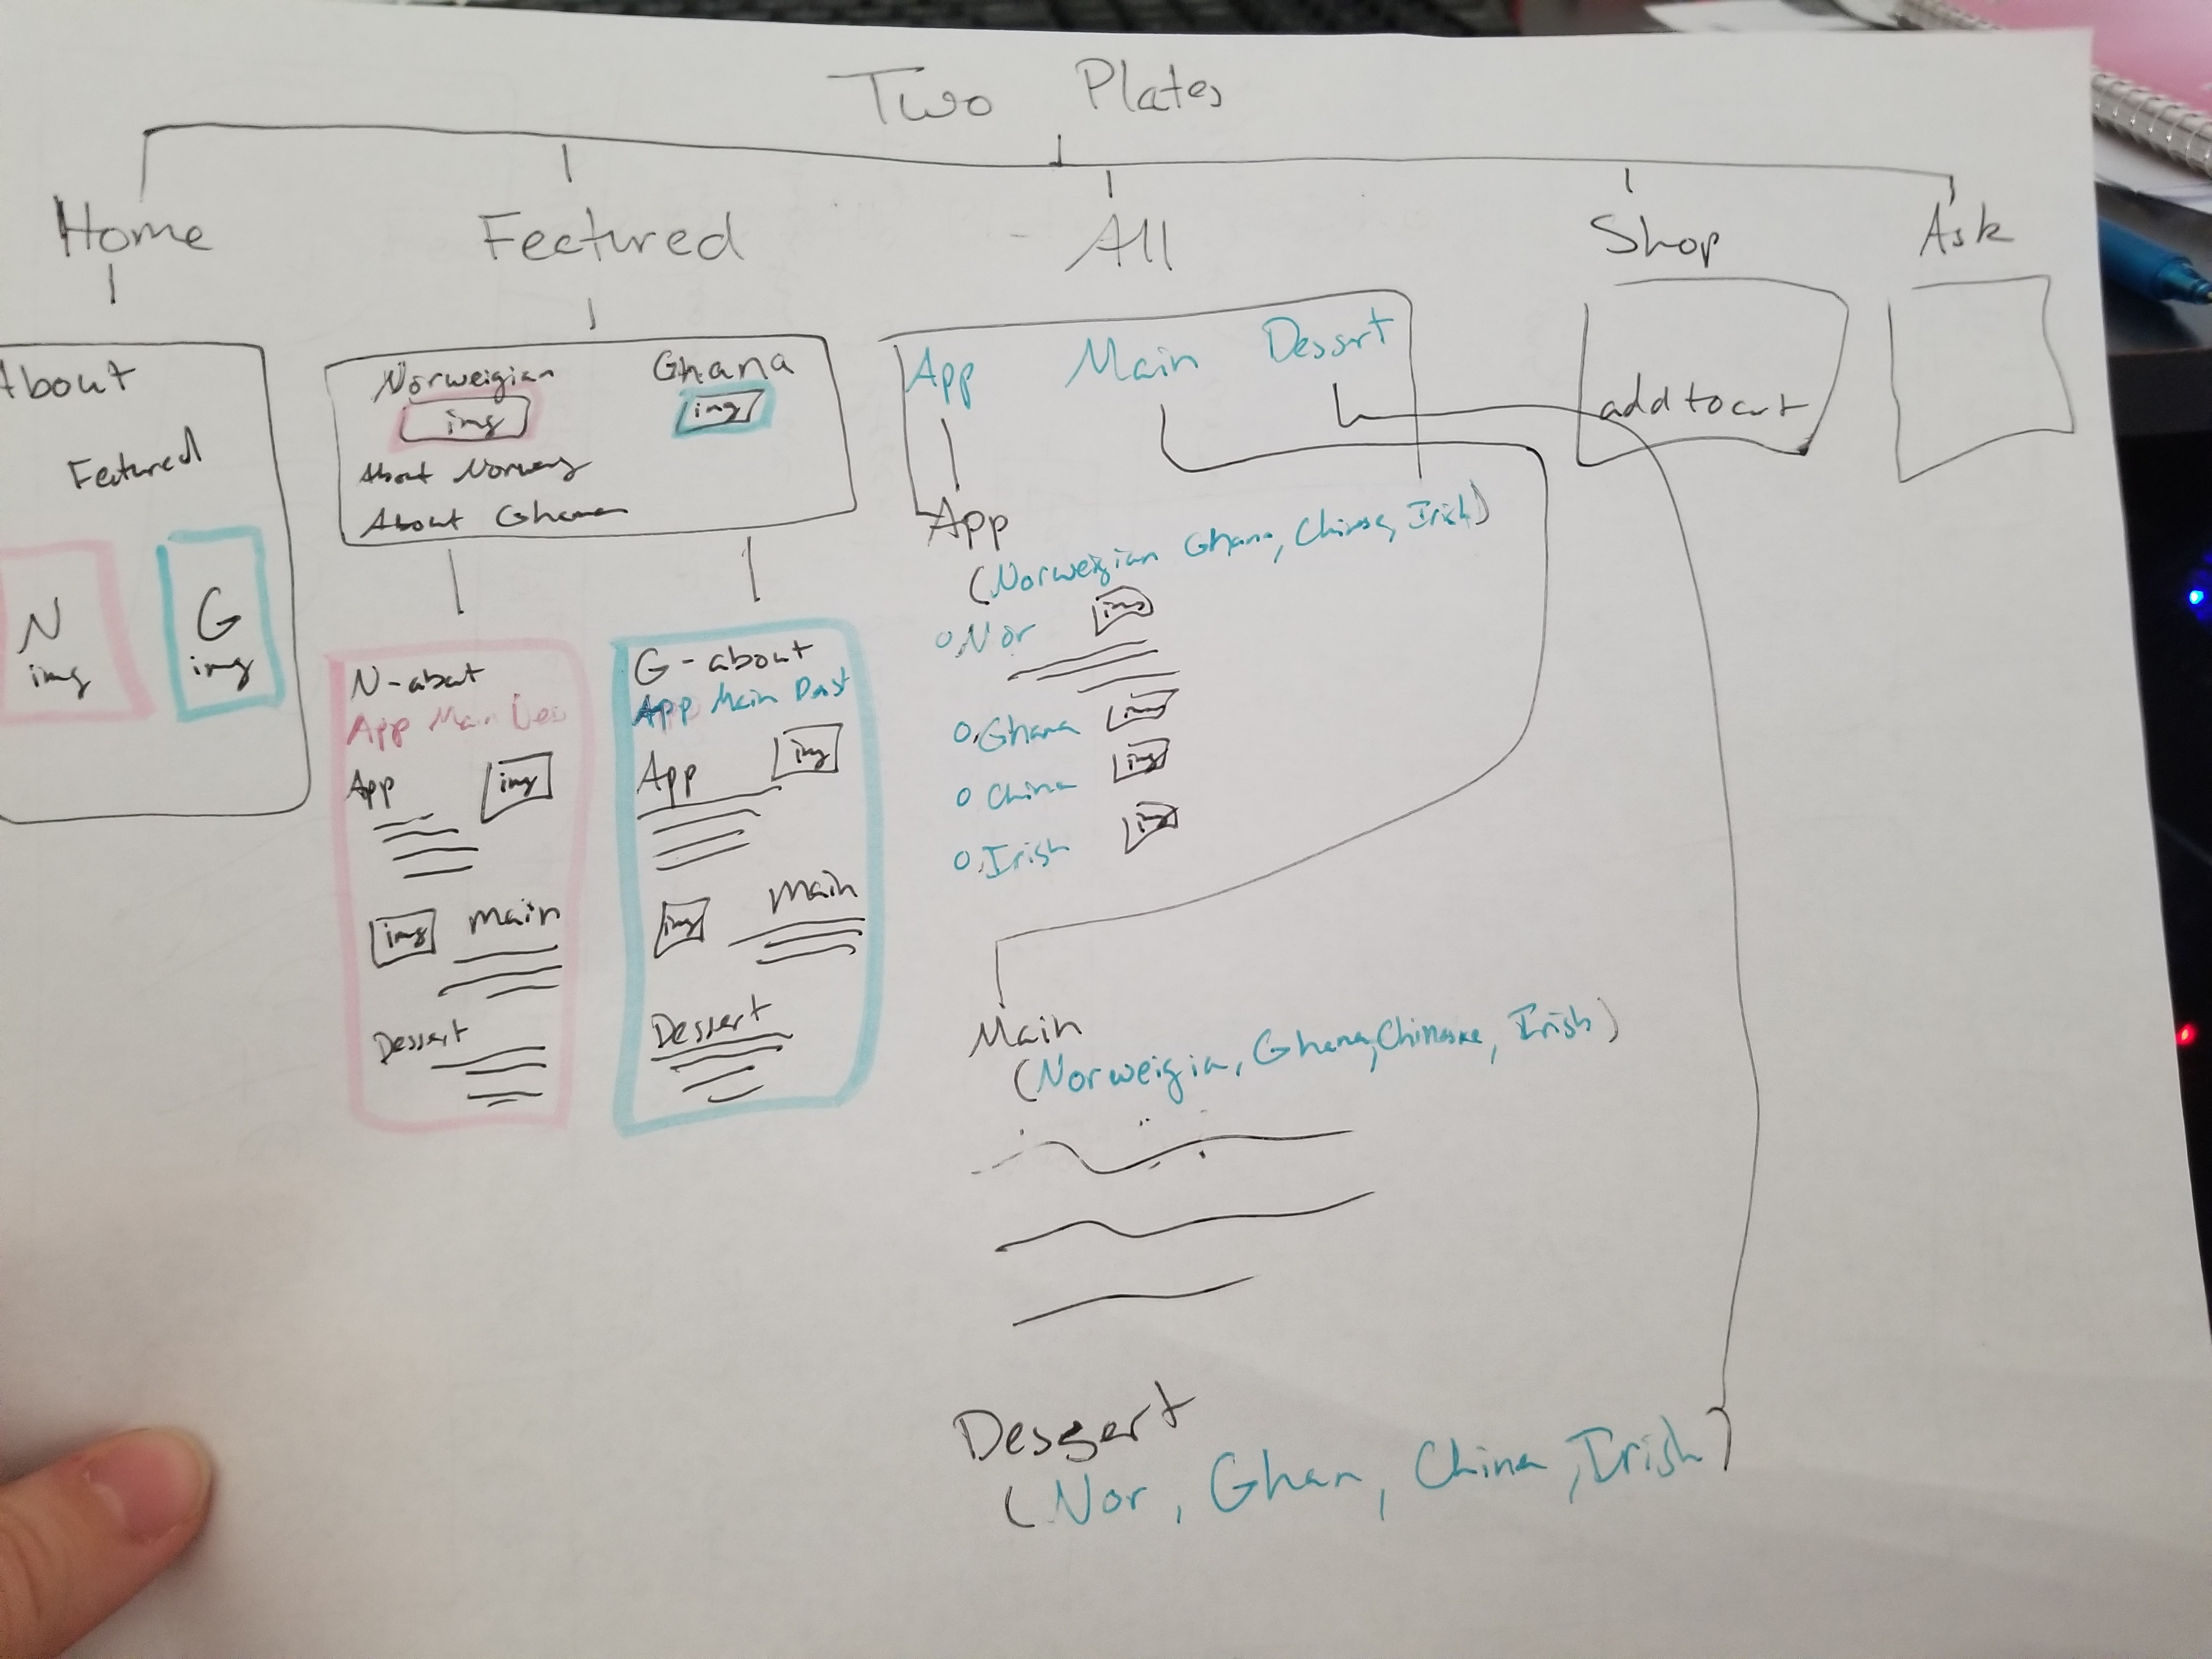 Two Plates
Home
Featured
All
Shop
Ask
About
Featured
N
img
G
img
Norweigian
img
Ghana
img
About Norway
About Ghana
N-about
App Main Des
App
img
img
Main
Dessert
G-about
App Main
App
img
img
Main
Dessert
App Main Dessert
App
(Norweigian Ghana, Chinese, Irish)
Nor
img
Ghana
img
China
img
Irish
img
Main
(Norweigia, Ghana, Chinese, Irish)
Dessert
(Nor, Ghan, China, Irish)
add to cart